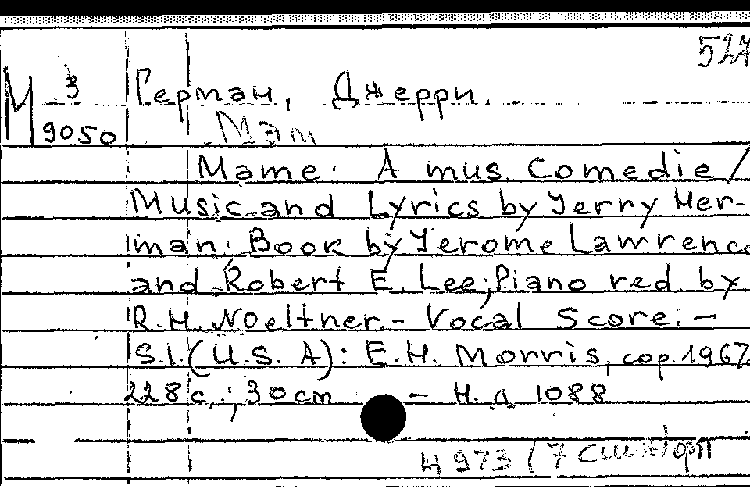 527
М 3
9050
Герман, Джерри.
Мэт
Mame: A mus. Comedie /
Music and Lyrics by Jerry Her-
man; Book by Jerome Lawrence
and Robert E. Lee; Piano red. by
R.H. Noeltner. - Vocal Score. -
S.l. (U.S. A): E.H. Morris, cop. 1967
228 с.; 30 cm - Н. д. 1088
Н 973 (7 Сш